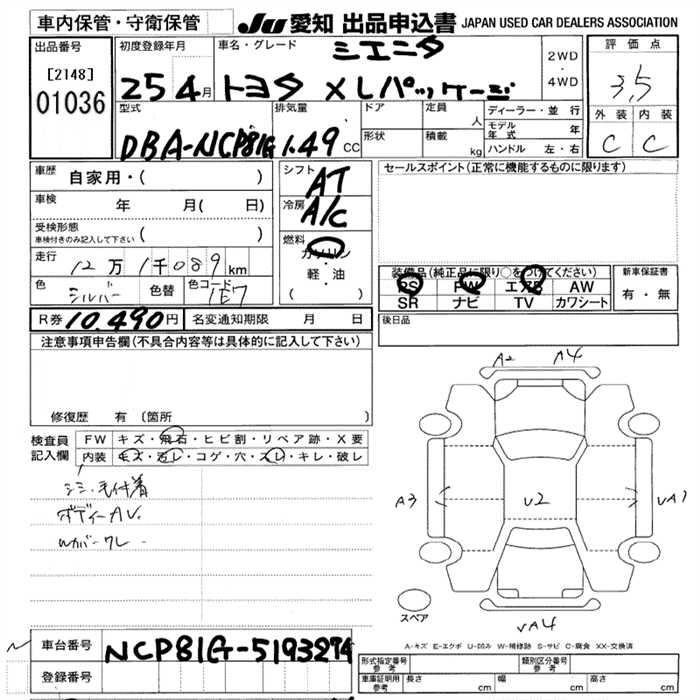 車内保管・守衛保管
JU 愛知 出品申込書 JAPAN USED CAR DEALERS ASSOCIATION
出品番号 初度登録年月 車名・グレード 2WD・4WD 評価点
[2148]
01036
シエニタ
25 4月 トヨタ XLパッケージ
3,5
型式 排気量 ドア 定員 人 ディーラー・並行
形状 積載 kg モデル年式 年
ハンドル 左・右
外装 内装
C C
DBA-NCP81G 1.49 CC
車歴 自家用・( )
シフト AT
セールスポイント(正常に機能するものに限ります)
車検 年 月( 日)
冷房 A/C
受検形態
車検付きのみ記入して下さい ( )
燃料 ガソリン・軽・油
( )
走行 12万1千089km
装備品(純正品に限り○をつけてください) 新車保証書
PS PW エアB AW 有・無
SR ナビ TV カワシート
色 シルバー 色替 色コード 1E7
R券 10,490円 名変通知期限 月 日
後日品
注意事項申告欄(不具合内容等は具体的に記入して下さい)
修復歴 有 (箇所
A2 A4
検査員記入欄 FW キズ・飛石・ヒビ割・リペア跡・X要
内装 キズ・汚レ・コゲ・穴・スレ・キレ・破レ
シミ・毛付着
ボディーAV.
A3 U2 UA1
スペア
UA4
車台番号 NCP81G-5193274
登録番号
A-キズ E-エクボ U-凹み W-補修跡 S-サビ C-腐食 XX-交換済
形式指定番号 参考 類別区分番号 参考
車庫証明用 参考 長さ cm 幅 cm 高さ cm